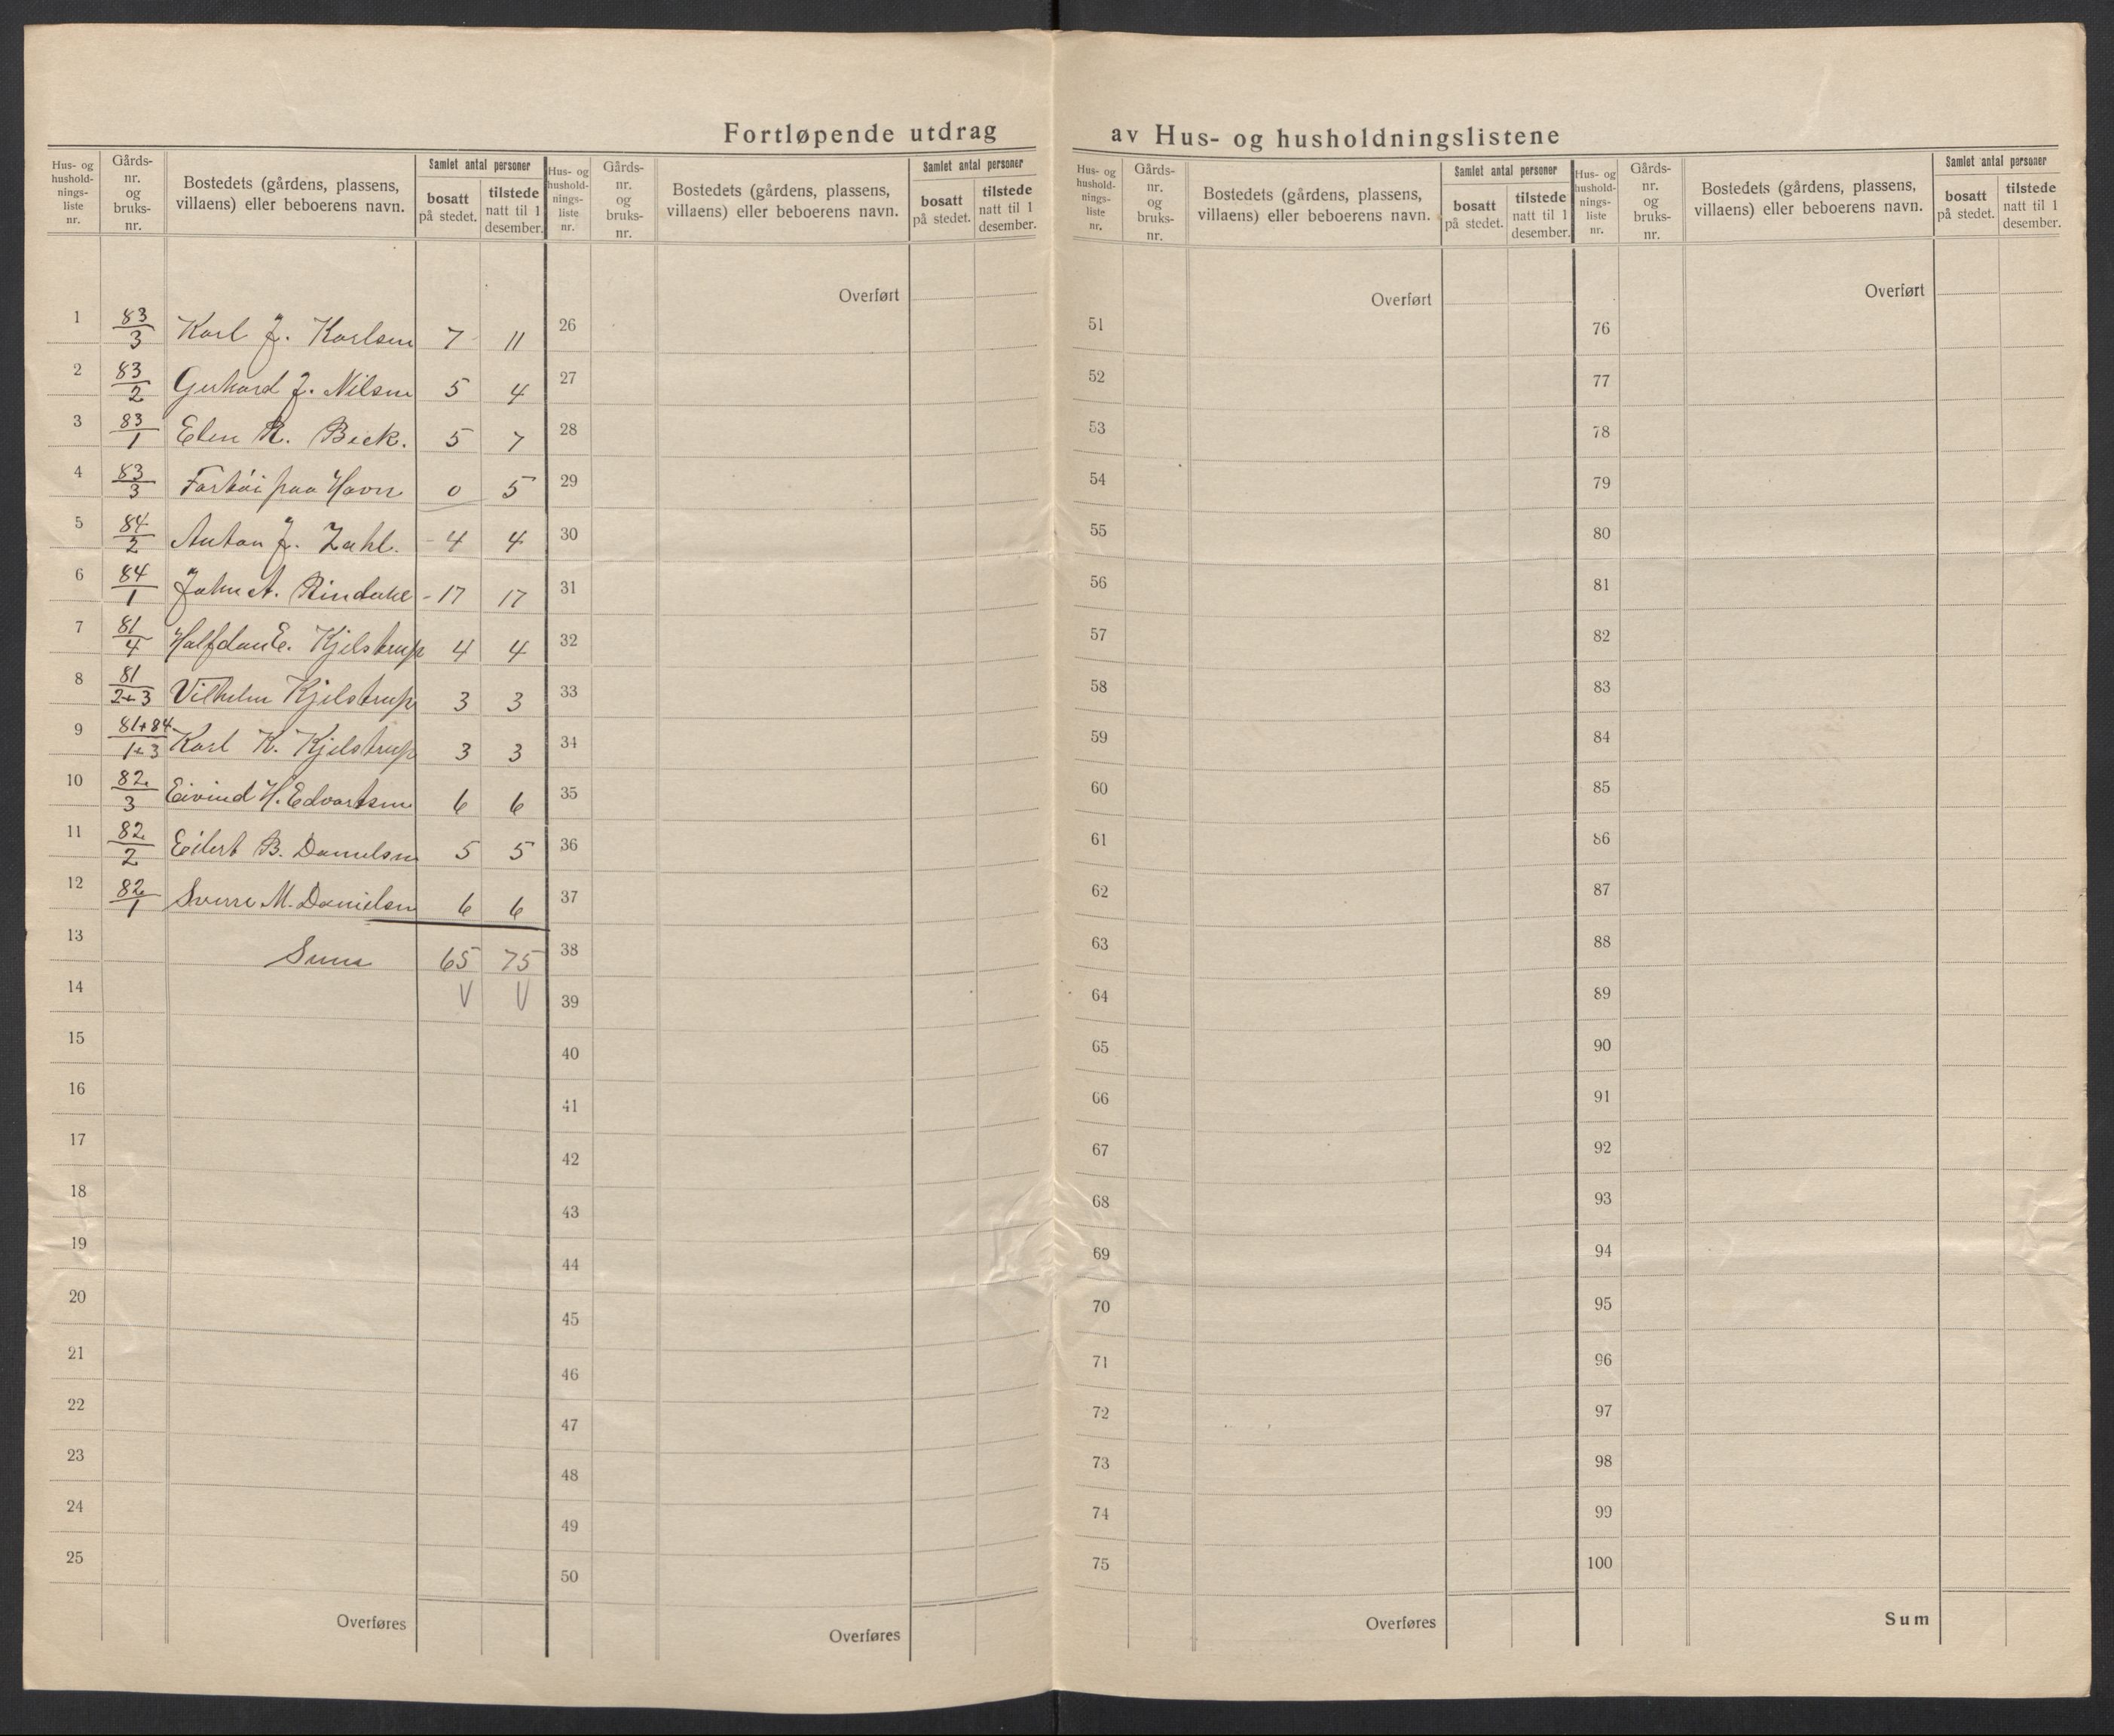 Fortløpende utdrag av Hus- og husholdningslistene
Hus- og hushold-nings-liste nr. | Gårds-nr. og bruks-nr. | Bostedets (gårdens, plassens, villaens) eller beboerens navn. | Samlet antal personer | bosatt på stedet. | tilstede natt til 1 desember.
1 | 83/3 | Karl J. Karlsen | 7 | 11
2 | 83/2 | Gerhard J. Nilsen | 5 | 4
3 | 83/1 | Elen R. Beck. | 5 | 7
4 | 83/3 | Fartøi paa Havn | 0 | 5
5 | 84/2 | Anton J. Zahl. | 4 | 4
6 | 84/1 | John A. | 17 | 17
7 | 81/4 | Halfdan E. Kjelstrup | 4 | 4
8 | 81/2+3 | Vilhelm Kjelstrup | 3 | 3
9 | 81+84/1+3 | Karl K. Kjelstrup | 3 | 3
10 | 82/3 | Eivind H. Edvartsen | 6 | 6
11 | 82/2 | Eilert B. Danielsen | 5 | 5
12 | 82/1 | Sverre M. Danielsen | 6 | 6
13 | Suma | 65 | 75
14 | V | V
15
16
17
18
19
20
21
22
23
24
25
Overføres
Hus- og hushold-nings-liste nr. | Gårds-nr. og bruks-nr. | Bostedets (gårdens, plassens, villaens) eller beboerens navn. | Samlet antal personer | bosatt på stedet. | tilstede natt til 1 desember.
Overført
26
27
28
29
30
31
32
33
34
35
36
37
38
39
40
41
42
43
44
45
46
47
48
49
50
Overføres
Hus- og hushold-nings-liste nr. | Gårds-nr. og bruks-nr. | Bostedets (gårdens, plassens, villaens) eller beboerens navn. | Samlet antal personer | bosatt på stedet. | tilstede natt til 1 desember.
Overført
51
52
53
54
55
56
57
58
59
60
61
62
63
64
65
66
67
68
69
70
71
72
73
74
75
Overføres
Hus- og hushold-nings-liste nr. | Gårds-nr. og bruks-nr. | Bostedets (gårdens, plassens, villaens) eller beboerens navn. | Samlet antal personer | bosatt på stedet. | tilstede natt til 1 desember.
Overført
76
77
78
79
80
81
82
83
84
85
86
87
88
89
90
91
92
93
94
95
96
97
98
99
100
Sum